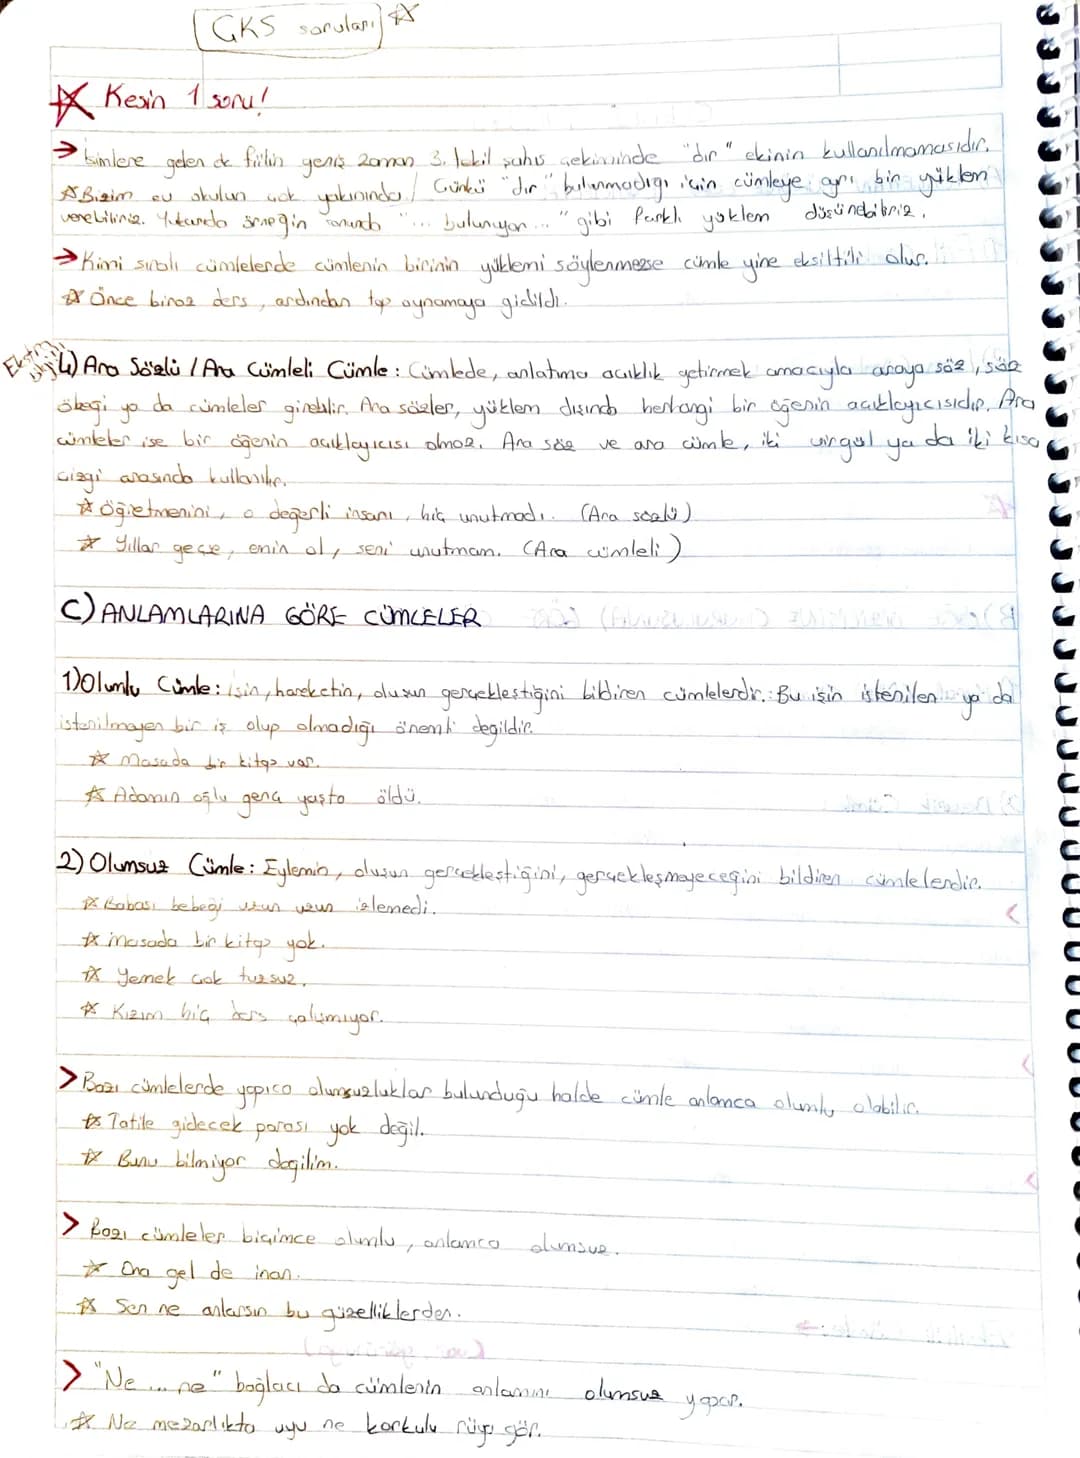 GKS soruları
Kesin 1 soru!
→ İsimlere gelen ek fiilin geniş zaman 3. tekil şahıs çekiminde "dır" ekinin kullanılmamasıdır.
☆ Bizim ev okulun çok yakınında / Çünkü "dır" bulunmadığı için cümleye ayrı bir yüklem
verebiliriz. Yukarıda örneğin sonunda "... bulunuyor ..." gibi farklı yüklem düşünebiliriz.
→ Kimi sıralı cümlelerde cümlenin birinin yüklemi söylenmezse cümle yine eksiltili olur.
☆ Önce biraz ders, ardından top oynamaya gidildi.
Ekstra bilgi
4) Ara Sözlü / Ara Cümleli Cümle: Cümlede, anlatıma açıklık getirmek amacıyla araya söz, söz
öbeği ya da cümleler girebilir. Ara sözler, yüklem dışında herhangi bir öğenin açıklayıcısıdır. Ara
cümleler ise bir öğenin açıklayıcısı olmaz. Ara söz ve ara cümle, iki virgül ya da iki kısa
çizgi arasında kullanılır.
☆ Öğretmenini, o değerli insanı, hiç unutmadı. (Ara sözlü)
☆ Yıllar geçse, emin ol, seni unutmam. (Ara cümleli)
C) ANLAMLARINA GÖRE CÜMLELER
1) Olumlu Cümle: İşin, hareketin, oluşun gerçekleştiğini bildiren cümlelerdir. Bu işin istenilen ya da
istenilmeyen bir iş olup olmadığı önemli değildir.
☆ Masada bir kitap var.
☆ Adamın oğlu genç yaşta öldü.
2) Olumsuz Cümle: Eylemin, oluşun gerçekleştiğini, gerçekleşmeyeceğini bildiren cümlelerdir.
☆ Babası bebeği uzun uzun izlemedi.
☆ Masada bir kitap yok.
☆ Yemek çok tuzsuz.
☆ Kızım hiç ders çalışmıyor.
> Bazı cümlelerde yapıca olumsuzluklar bulunduğu halde cümle anlamca olumlu olabilir.
☆ Tatile gidecek parası yok değil.
☆ Bunu bilmiyor değilim.
> Bazı cümleler biçimce olumlu, anlamca olumsuz.
☆ Ona gel de inan.
☆ Sen ne anlarsın bu güzelliklerden.
> "Ne ... ne" bağlacı da cümlenin anlamını olumsuz yapar.
☆ Ne mezarlıkta uyu ne korkulu rüya gör.